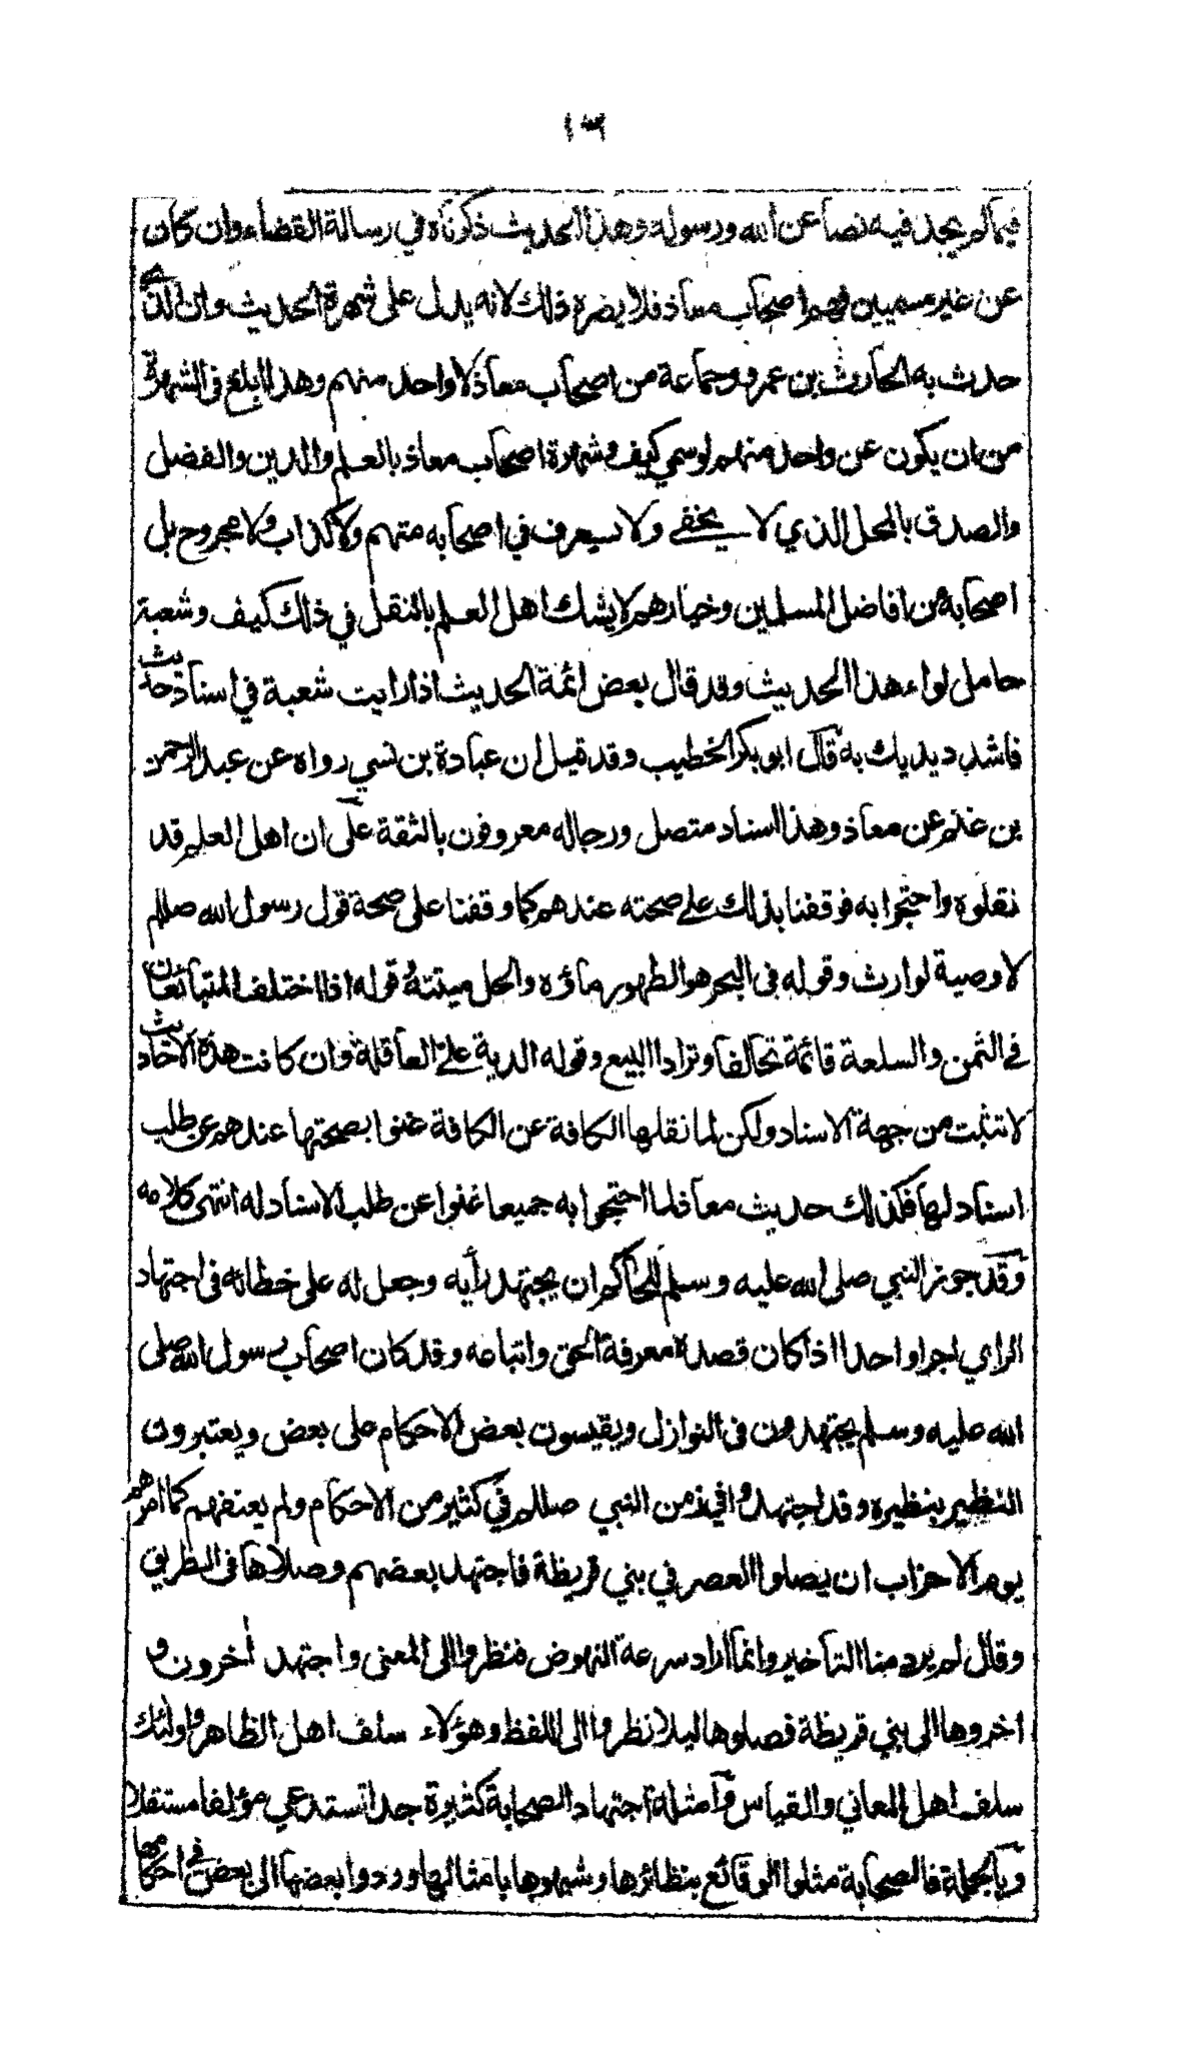 ١٣
فيما لم يجد فيه نصا عن الله ورسوله وهذا الحديث ذكرناه في رسالة القضاء وان كان
عن غير مسميين فهم اصحاب معاذ فلا يضره ذلك لانه يدل على شهرة الحديث وان الذي
حدث به الحارث بن عمرو وجماعة من اصحاب معاذ لا واحد منهم وهذا ابلغ فى الشهرة
من ان يكون عن واحد منهم لو سمي كيف وشهرة اصحاب معاذ بالعلم والدين والفضل
والصدق بالمحل الذي لا يخفے ولا يعرف في اصحابه متهم ولا كذاب ولا مجروح بل
اصحابه من افاضل المسلمين وخيارهم لا يشك اهل العلم بالنقل في ذلك كيف وشعبة
حامل لواء هذا الحديث وقد قال بعض ائمة الحديث اذا رايت شعبة في اسناد حديث
فاشدد يديك به قال ابو بكر الخطيب وقد قيل ان عبادة بن نسي رواه عن عبد الرحمن
بن غنم عن معاذ وهذا اسناد متصل ورجاله معروفون بالثقة على ان اهل العلم قد
نقلوه واحتجوا به فوقفنا بذلك علے صحته عندهم كما وقفنا على صحة قول رسول الله صللم
لا وصية لوارث وقوله فى البحر هو الطهور ماؤه والحل ميتته وقوله اذا اختلف المتبائعان
فے الثمن والسلعة قائمة تحالفا وترادا البيع وقوله الدية علے العاقلة وان كانت هذه الاحاديث
لا تثبت من جهة الاسناد ولكن لما نقلها الكافة عن الكافة غنوا بصحتها عندهم عن طلب
اسناد لها فكذلك حديث معاذ لما احتجوا به جميعا غنوا عن طلب الاسناد له انتهى كلامه
وقد جوز النبي صلى الله عليه وسلم للحاكم ان يجتهد رأيه وجعل له على خطائه فى اجتهاد
الراي اجرا واحدا اذا كان قصده معرفة الحق واتباعه وقد كان اصحاب رسول الله صلى
الله عليه وسلم يجتهدون فى النوازل ويقيسون بعض الاحكام على بعض ويعتبرون
النظير بنظيره وقد اجتهدوا في زمن النبي صللم في كثير من الاحكام ولم يعنفهم كما امرهم
يوم الاحزاب ان يصلوا العصر في بني قريظة فاجتهد بعضهم وصلاها فى الطريق
وقال لم يرد منا التأخير وانما اراد سرعة النهوض فنظروا الى المعنى واجتهد أخرون و
اخروها الى بني قريظة فصلوها ليلا نظروا الى اللفظ وهؤلاء سلف اهل الظاهر واولئك
سلف اهل المعاني والقياس وامثلة اجتهاد الصحابة كثيرة جدا تستدعي مؤلفا مستقلا
وبالجملة فالصحابة مثلوا الوقائع بنظائرها وشبهوها بامثالها وردوا بعضها الى بعض في احكامها